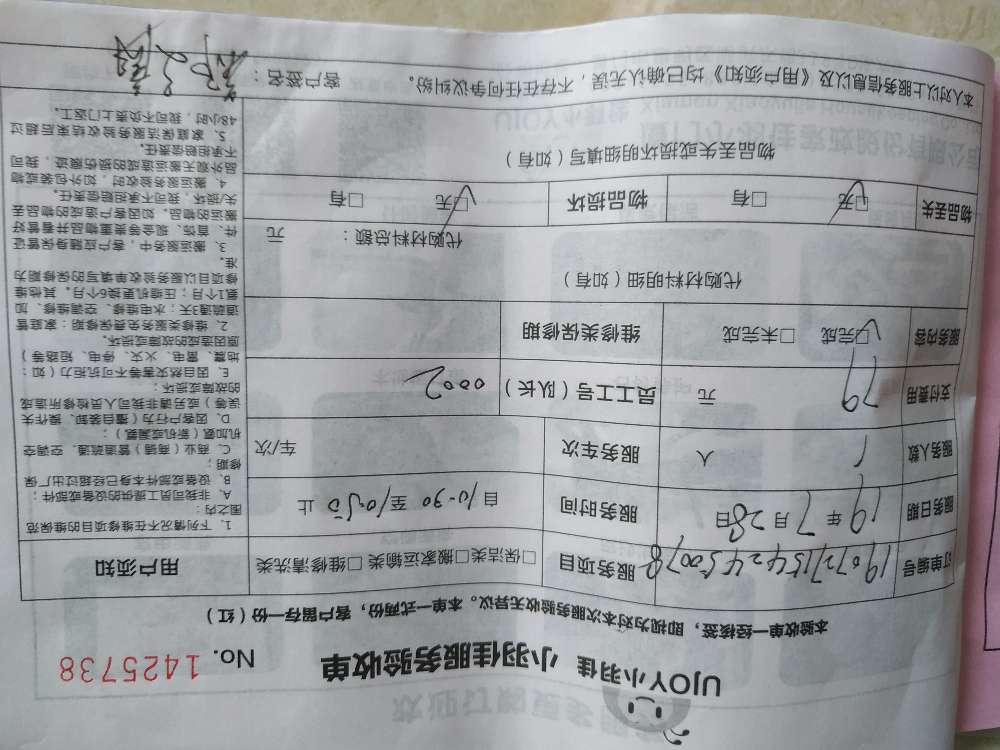 UJOY小羽佳 小羽佳服务验收单 No. 1425738
本验收单一经核签，即视为对本次服务验收无异议。本单一式两份，客户留存一份（红）
订单编号 1907271542450078 服务项目 □保洁类□搬家运输类 □维修清洗类
服务日期 19年7月28日 服务时间 自 10:30 至 10:50 止
服务人数 1 人 服务车次 车/次
支付费用 79 元 员工工号（队长） 0002
服务内容 □完成 □未完成 维修类保修期
代购材料明细（如有）
代购材料总额： 元
物品丢失 □无 □有 物品损坏 □无 □有
物品丢失或损坏明细填写（如有）
用户须知
1. 下列情况不在维修项目的维保范
围之内：
A、非我司员工提供的设备或部件；
B、设备或部件本身已经超过出厂保
修期；
C、商业（商铺）管道疏通、空调空
机加氨（新机或漏氟）；
D、因客户行为（擅自装卸、操作失
误等）或另请非我司人员检修所造成
的故障或损坏；
E、因自然灾害等不可抗拒力（如：
地震、雷电、火灾、停电、短路等）
原因造成的故障或损坏。
2、维修类服务免费保修期：家庭管
道疏通3天；水电维修、空调维修、加
氨1个月；压缩机更换6个月。其他维
修项目以服务验收单填写的保修期为
准。
3、搬运服务中，客户应随身保管证
件、首饰、现金等贵重物品并看管好
搬运的物品，如因客户造成的物品丢
失损坏，我司不承担赔偿责任。
4、搬运服务验收时，如外包装或物
品外观无搬运造成的损伤痕迹，我司
不承担赔偿责任。
5、家庭保洁服务验收结束后超过
48小时，我司不上负责上门返工。
本人对以上服务信息以及《用户须知》均已确认无误，不存在任何争议纠纷。 客户签名：